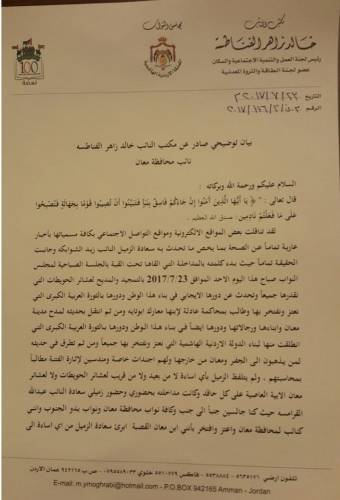 مكتب النائب
خالد زاهر الفناطسة
رئيس لجنة العمل والتنمية الاجتماعية والسكان
عضو لجنة الطاقة والثروة المعدنية
مجلس النواب
المملكة الأردنية الهاشمية
100
التاريخ
الرقم
بيان توضيحي صادر عن مكتب النائب خالد زاهر الفناطسه
نائب محافظة معان
السلام عليكم ورحمة الله وبركاته :
قال تعالى : " يَا أَيُّهَا الَّذِينَ آمَنُوا إِن جَاءَكُمْ فَاسِقٌ بِنَبَإٍ فَتَبَيَّنُوا أَن تُصِيبُوا قَوْمًا بِجَهَالَةٍ فَتُصْبِحُوا
عَلَىٰ مَا فَعَلْتُمْ نَادِمِينَ . صدق الله العظيم .
لقد تناقلت بعض المواقع الالكترونية ومواقع التواصل الاجتماعي بكافة مسمياتها بأخبار
عارية تماماً عن الصحة بما يخص ما تحدث به سعادة الزميل النائب زيد الشوابكه وجانبت
الحقيقة تماماً حيث بدء كلمته بالمداخلة التي القاها تحت القبة بالجلسة الصباحية لمجلس
النواب صباح هذا اليوم الاحد الموافق 2017/7/23 بالتمجيد والمديح لعشائر الحويطات التي
نقدرها جميعاً وتحدث عن دورها الايجابي في بناء هذا الوطن ودورها بالثورة العربية الكبرى التي
نعتز ونفتخر بها وطالب بمحاكمة عادلة لإبنها معارك ابوتايه ومن ثم انتقل بحديثه لمدح مدينة
معان وابناءها ورجالاتها ودورها ايضاً في بناء هذا الوطن ودورها بالثورة العربية الكبرى التي
انطلقت منها لبناء الدولة الاردنية الهاشمية التي نعتز ونفتخر بها جميعاً ومن ثم تطرق في حديثه
لمن يذهبون الى الجفر ومعان من خارجها ولهم اجندات خاصة ومندسين لإثارة الفتنة مطالباً
بمحاسبتهم . ولم يتلفظ الزميل بأي اساءة لا من بعيد ولا من قريب لعشائر الحويطات ولا لعشائر
معان الابية العاصية على كل حاقد وكانت مداخلته بحضوري وحضور زميلي سعادة النائب عبدالله
القرامسه حيث كنا جالسين جنباً الى جنب وكافة نواب محافظة معان ونواب بدو الجنوب وانني
كنائب لمحافظة معان واعتز وافتخر بأنني ابن القصبة ابرئ سعادة الزميل من اي اساءة الى
E-mail: m.ymoghrabi@hotmail.com - P.O.BOX 942165 Amman - Jordan